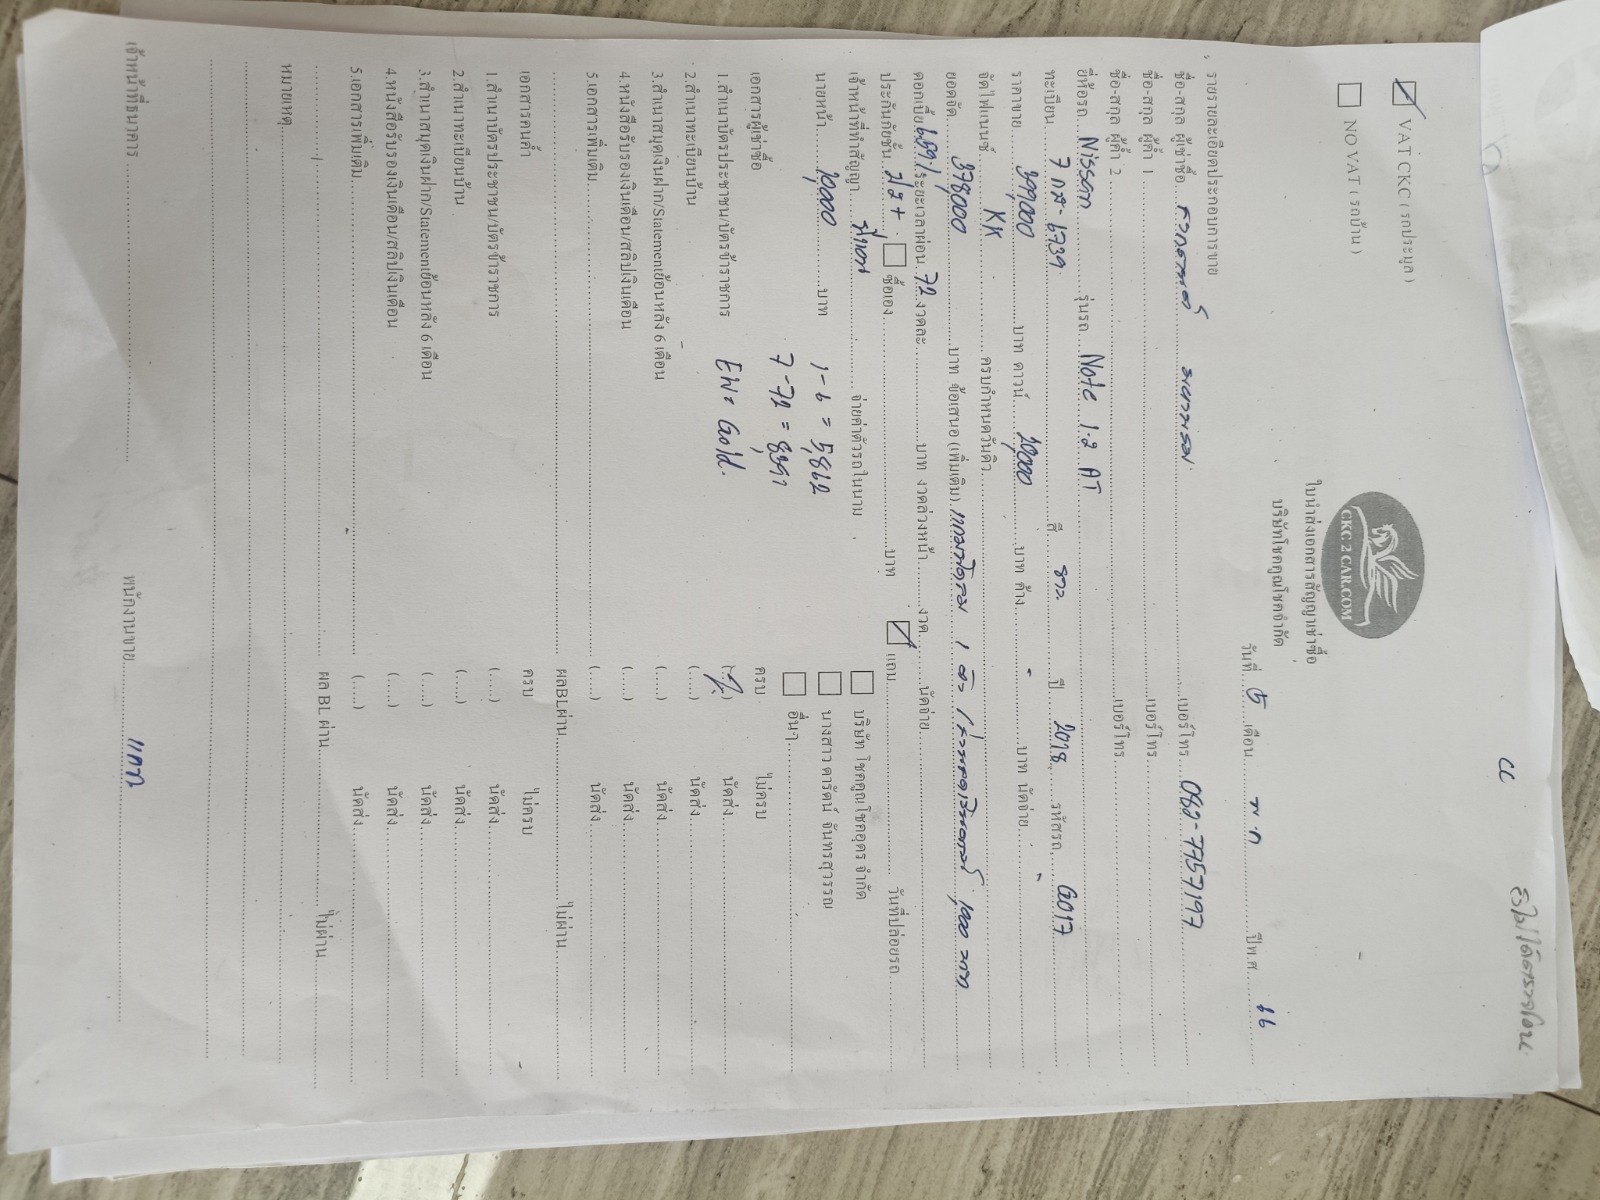 CC
☑ VAT CKC ( รถประมูล )
☐ NO VAT ( รถบ้าน )
CKC 2 CAR.COM
ใบนำส่งเอกสารสัญญาเช่าซื้อ
บริษัทโชคคูณโชคจำกัด
วันที่ 5 เดือน พ.ค ปีพ.ศ. 66
รายรายละเอียดประกอบการขาย
ชื่อ-สกุล ผู้เช่าซื้อ เบอร์โทร 082-7757197
ชื่อ-สกุล ผู้ค้ำ 1 เบอร์โทร
ชื่อ-สกุล ผู้ค้ำ 2 เบอร์โทร
ยี่ห้อรถ Nissan รุ่นรถ Note 1.2 AT
ทะเบียน สี ขาว ปี 2018 รหัสรถ G017
ราคาขาย บาท ดาวน์ บาท ค้าง - บาท นัดจ่าย -
จัดไฟแนนซ์ KK ครบกำหนดวันคิว
ยอดจัด 378,000 บาท ข้อเสนอ (เพิ่มเติม)
ดอกเบี้ย ระยะเวลาผ่อน 72 งวดละ บาท งวดล่วงหน้า งวด นัดจ่าย
ประกันภัยชั้น ป2+ ☐ ซื้อเอง บาท ☑ แถม วันที่ปล่อยรถ
เจ้าหน้าที่ทำสัญญา จ่ายค่าตัวรถในนาม ☐ บริษัท โชคคูณโชคอุดร จำกัด
นายหน้า บาท 1-6 = 5,862 ☐ นางสาว คารัตน์ จันทรสุวรรณ
7-72 = ☐ อื่นๆ
เอกสารผู้เช่าซื้อ EW = Gold. ครบ ไม่ครบ
1.สำเนาบัตรประชาชน/บัตรข้าราชการ นัดส่ง
2.สำเนาทะเบียนบ้าน (....) นัดส่ง
3.สำเนาสมุดเงินฝาก/Statementย้อนหลัง 6 เดือน (....) นัดส่ง
4.หนังสือรับรองเงินเดือน/สลิปเงินเดือน (....) นัดส่ง
5.เอกสารเพิ่มเติม (....) นัดส่ง
ผลBLผ่าน ไม่ผ่าน
เอกสารคนค้ำ ครบ ไม่ครบ
1.สำเนาบัตรประชาชน/บัตรข้าราชการ (....) นัดส่ง
2.สำเนาทะเบียนบ้าน (....) นัดส่ง
3.สำเนาสมุดเงินฝาก/Statementย้อนหลัง 6 เดือน (....) นัดส่ง
4.หนังสือรับรองเงินเดือน/สลิปเงินเดือน (....) นัดส่ง
5.เอกสารเพิ่มเติม (....) นัดส่ง
ผล BL ผ่าน ไม่ผ่าน
หมายเหตุ
เจ้าหน้าที่ธนาคาร พนักงานขาย